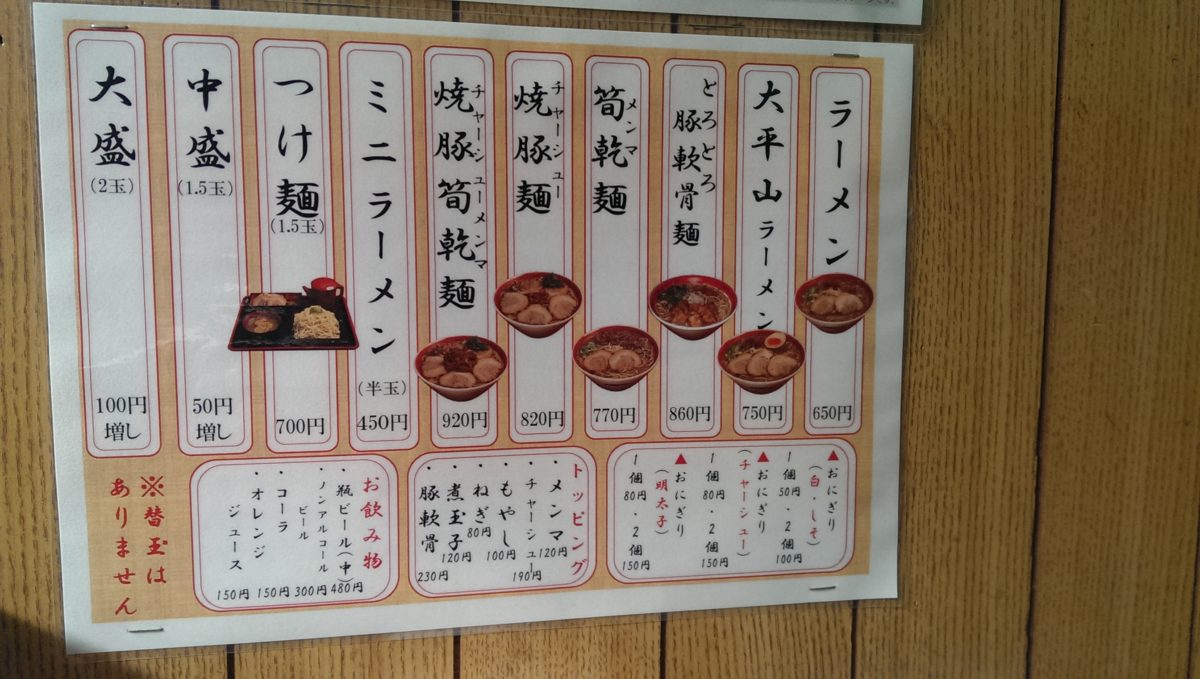 ラーメン
650円
大平山ラーメン
750円
とろとろ
豚軟骨麺
860円
メンマ
筍乾麺
770円
チャーシュー
焼豚麺
820円
チャーシューメンマ
焼豚筍乾麺
920円
ミニラーメン
(半玉)
450円
つけ麺
(1.5玉)
700円
中盛
(1.5玉)
50円
増し
大盛
(2玉)
100円
増し
▲おにぎり
(白・しそ)
1個50円・2個100円
▲おにぎり
(チャーシュー)
1個80円・2個150円
▲おにぎり
(明太子)
1個80円・2個150円
トッピング
・メンマ120円
・チャーシュー190円
・もやし100円
・ねぎ80円
・煮玉子120円
・豚軟骨230円
お飲み物
・瓶ビール(中)480円
・ノンアルコール
ビール300円
・コーラ150円
・オレンジ
ジュース150円
※替玉は
ありません